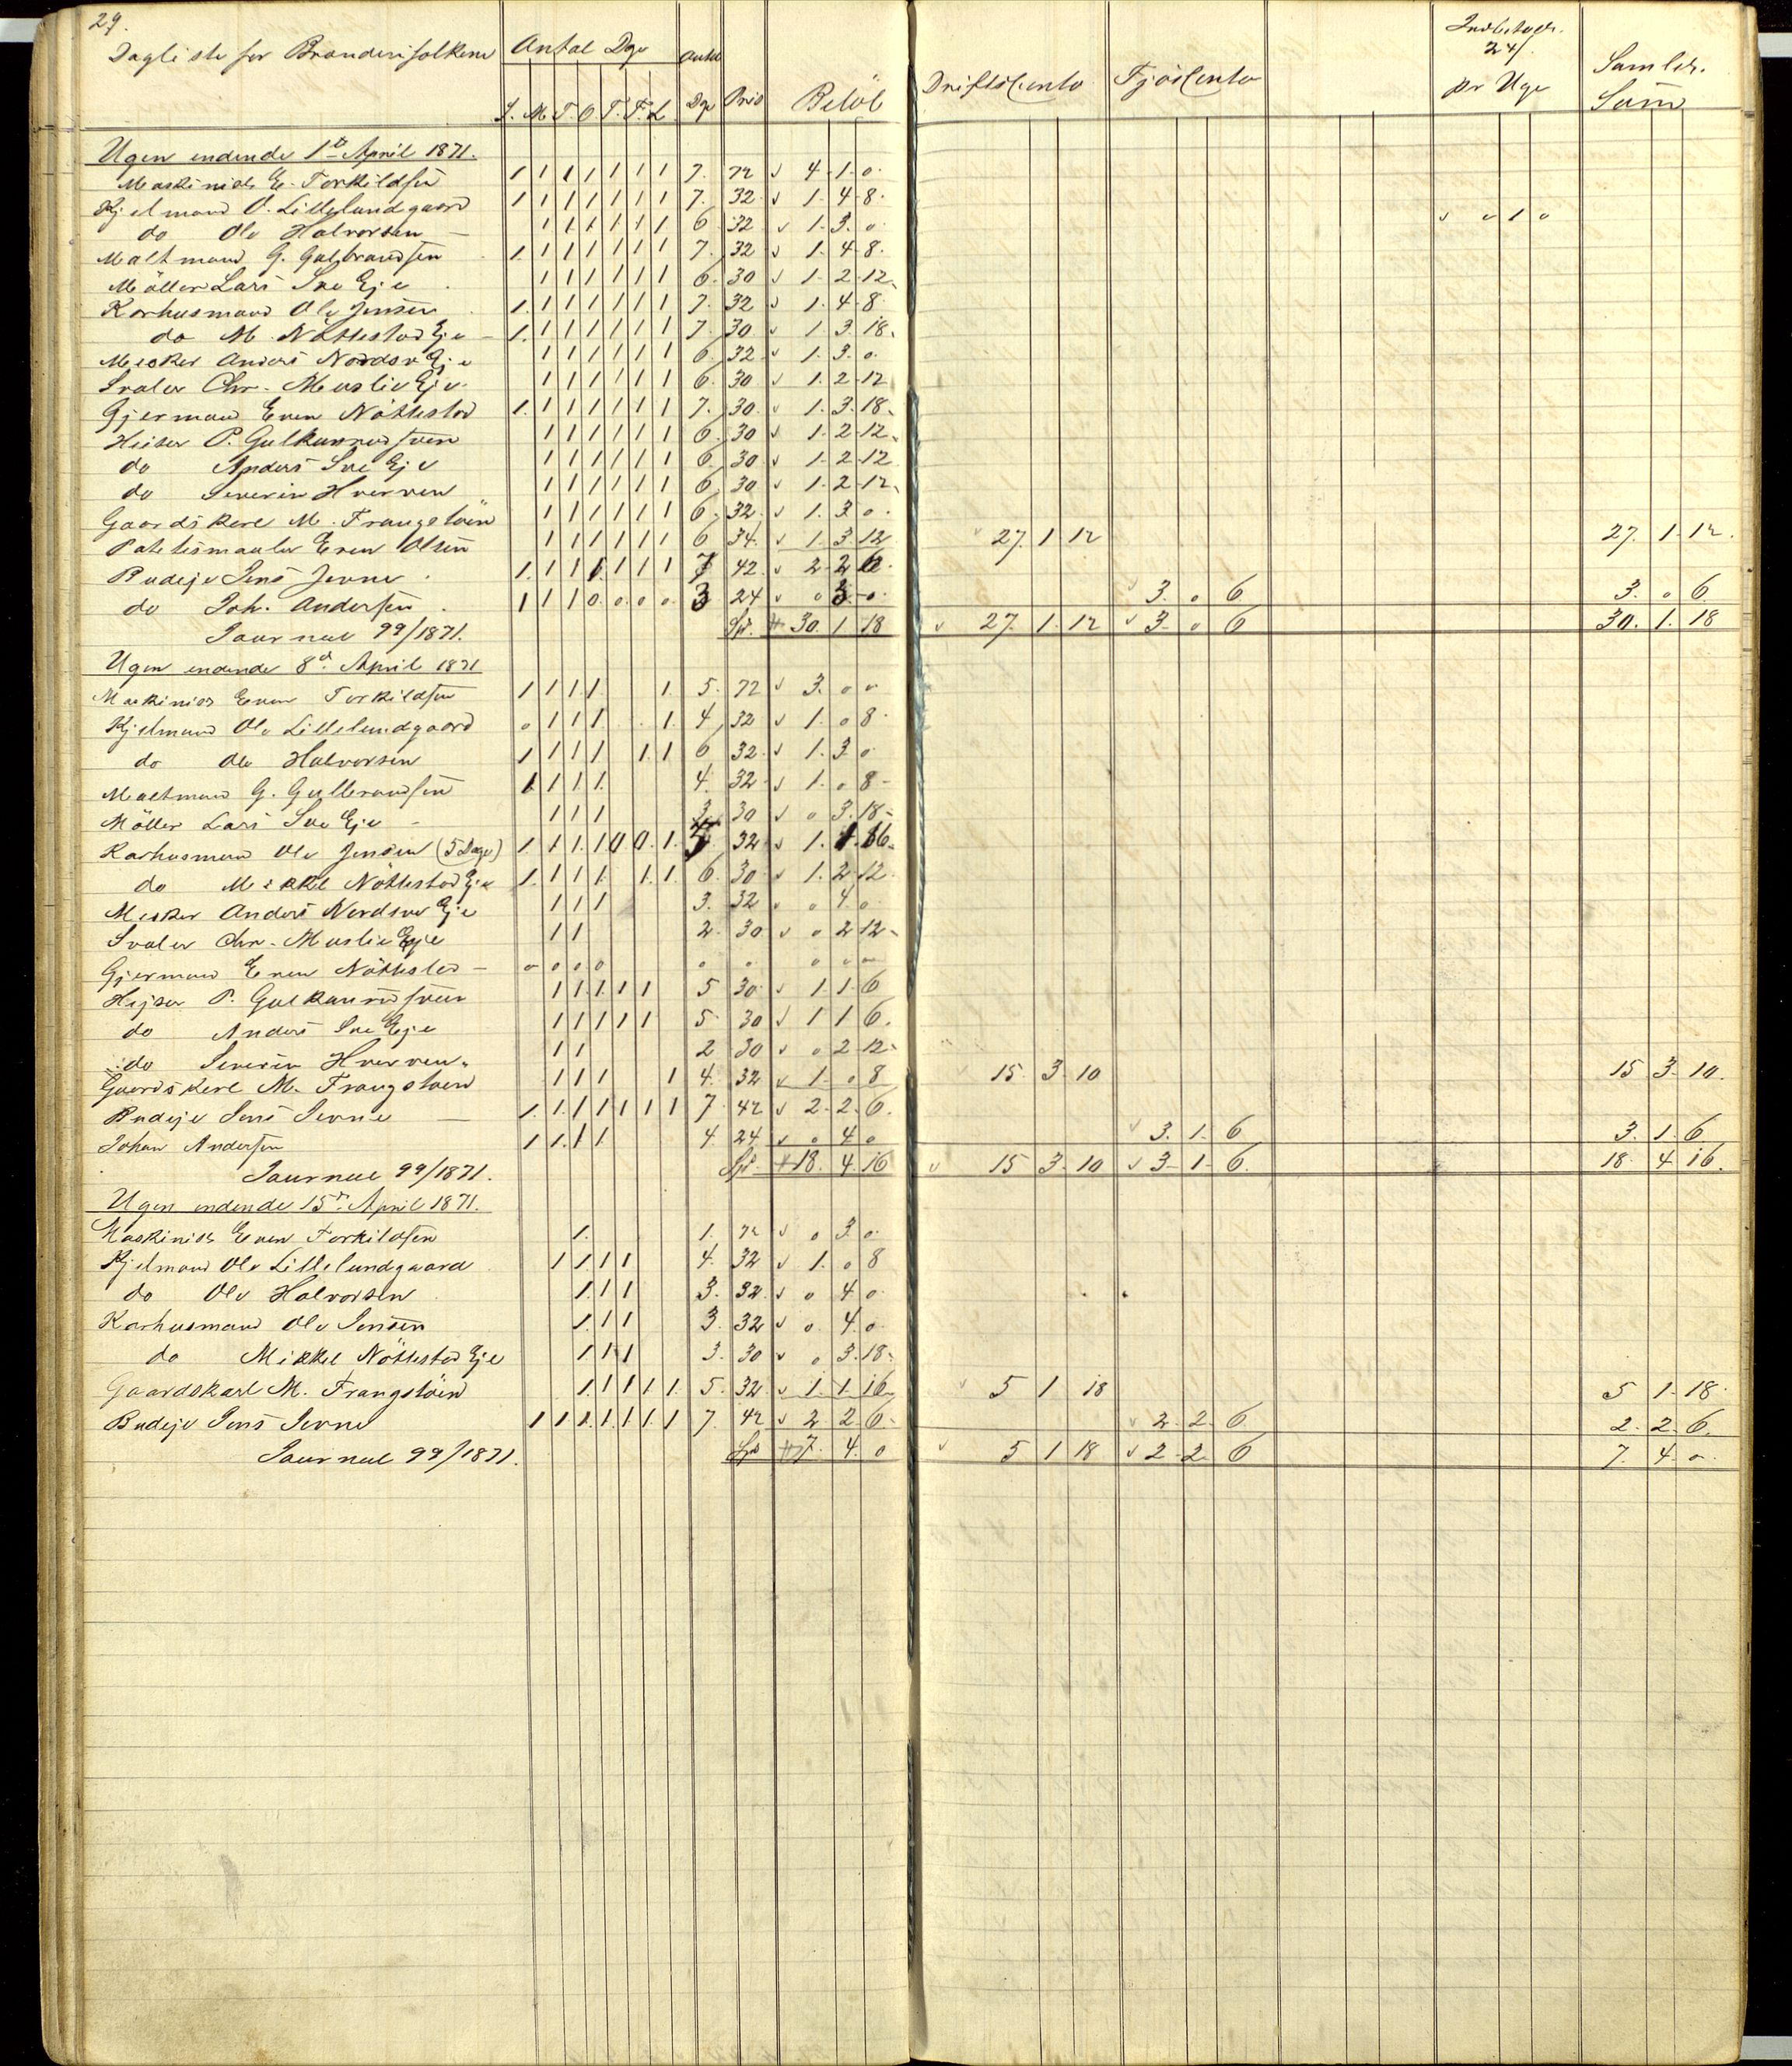 29.
Dagliste for Brænderifolkene Antal Dge Antal Dge Pris Belöb Driftsconto Fjösconto Indbetalt. 24/ pr Uge Samlet. Sum
S. M. T. O. T. F. L.
Ugen endende 1ste April 1871.
Maskinist E. Torkildsen 1 1 1 1 1 1 1 7. 72 4. 1. 0.
Kjelmand O. Lillelundgaard 1 1 1 1 1 1 1 7. 32 1. 4. 8. 1 0
do Ole Halvorsen 1 1 1 1 1 1 6 32 1. 3. 0
Maltmand G. Gulbrandsen 1. 1 1 1 1 1 1 7. 32 1. 4. 8.
Möller Lars Sve Eje 1 1 1 1 1 1 6. 30 1. 2. 12.
Karhusmand Ole Jensen 1. 1 1 1 1 1 1 7. 32 1. 4. 8.
do M. Nöttestad Eje 1. 1 1 1 1 1 1 7. 30 1. 3. 18.
Mesker Anders Nordsve Eje 1 1 1 1 1 1 6. 32 1. 3. 0.
Svaler Chr. Muslie Eje 1 1 1 1 1 1 6. 30 1. 2. 12
Gjermand Even Nöttestad 1. 1 1 1 1 1 1 7. 30. 1. 3. 18.
Heiser P. Gulkannudsveen 1 1 1 1 1 1 6. 30 1. 2. 12.
do Anders Sve Eje 1 1 1 1 1 1 6. 30 1. 2. 12
do Severin Hverven 1 1 1 1 1 1 6. 30 1. 2. 12.
Gaardskerl M. Frangstöen 1 1 1 1 1 1 6. 32. 1. 3. 0.
Potetesmaaler Even Olsen 1 1 1 1 1 1 6 34. 1. 3. 12 27. 1 12 27. 1. 12.
Budeje Jens Jevne 1. 1 1 1 1 1 1 7 42 2. 2. 6.
do Joh. Andersen 1 1 1 0. 0. 0. 0. 3 24 0 3. 0. 3. 0 6 3. 0 6.
Journal 99/1871. Spd. 30. 1 18 27. 1. 12 3. 0 6 30. 1. 18
Ugen endende 8de April 1871
Maskinist Even Torkildsen 1 1 1 1. 1. 5. 72 3. 0 0
Kjelmand Ole Lillelundgaard 0 1 1 1 1. 4 32 1. 0 8.
do Ole Halvorsen 1 1 1 1 1. 1 6 32. 1. 3. 0
Maltmand G. Gulbrandsen 1 1 1 1. 4. 32. 1. 0 8
Möller Lars Sve Eje 1 1 1 3. 30 0 3. 18
Karhusmand Ole Jensen (5 Dage) 1. 1 1. 1 0 0. 1. 5 32. 1. 1. 16.
do Mikkel Nöttestad Eje 1. 1 1 1. 1. 1. 6. 30. 1. 2. 12.
Mesker Anders Nordsve Eje 1 1 1 3. 32 0 4. 0
Svaler Chr. Muslie Eje 1 1 2. 30. 0 2 12
Gjermand Even Nöttestad 0 0 0 0 0 0 0 0 0
Hejser P. Gulkannudsveen 1 1. 1. 1 1 5 30. 1 1. 6
do Anders Sve Eje 1 1 1 1 1 5 30 1 1 6.
do Severin Hverven 1 1 2 30 0 2 12.
Gaardskerl M. Frangstöen 1 1 1 1 4. 32 1. 0 8 15. 3. 10 15 3. 10.
Budeje Jens Jevne 1. 1. 1 1 1 1 1 7. 42 2. 2. 6.
Johan Andersen 1 1. 1 1. 4. 24 0 4. 0 3. 1. 6 3. 1. 6.
Journal 99/1871. Spd. 18. 4. 16 15 3. 10 3. 1. 6. 18. 4 16.
Ugen endende 15de April 1871.
Maskinist Even Torkildsen 1. 1. 72 0 3. 0.
Kjelmand Ole Lillelundgaard 1 1. 1 1 4. 32 1. 0 8
do Ole Halvorsen 1. 1 1 3. 32 0 4. 0
Karhusmand Ole Jensen 1. 1 1 3. 32 0. 4. 0
do Mikkel Nöttestad Eje 1 1 1 3. 30 0 3. 18.
Gaardskarl M. Frangstöen 1. 1 1 1. 1. 5. 32 1. 1. 16 5 1 18 5 1. 18.
Budeje Jens Jevne 1 1 1. 1. 1. 1. 1 7. 42 2 2. 6. 2. 2. 6 2. 2. 6.
Journal 99/1871. Spd 7. 4. 0 5 1 18 2. 2. 6 7. 4. 0.